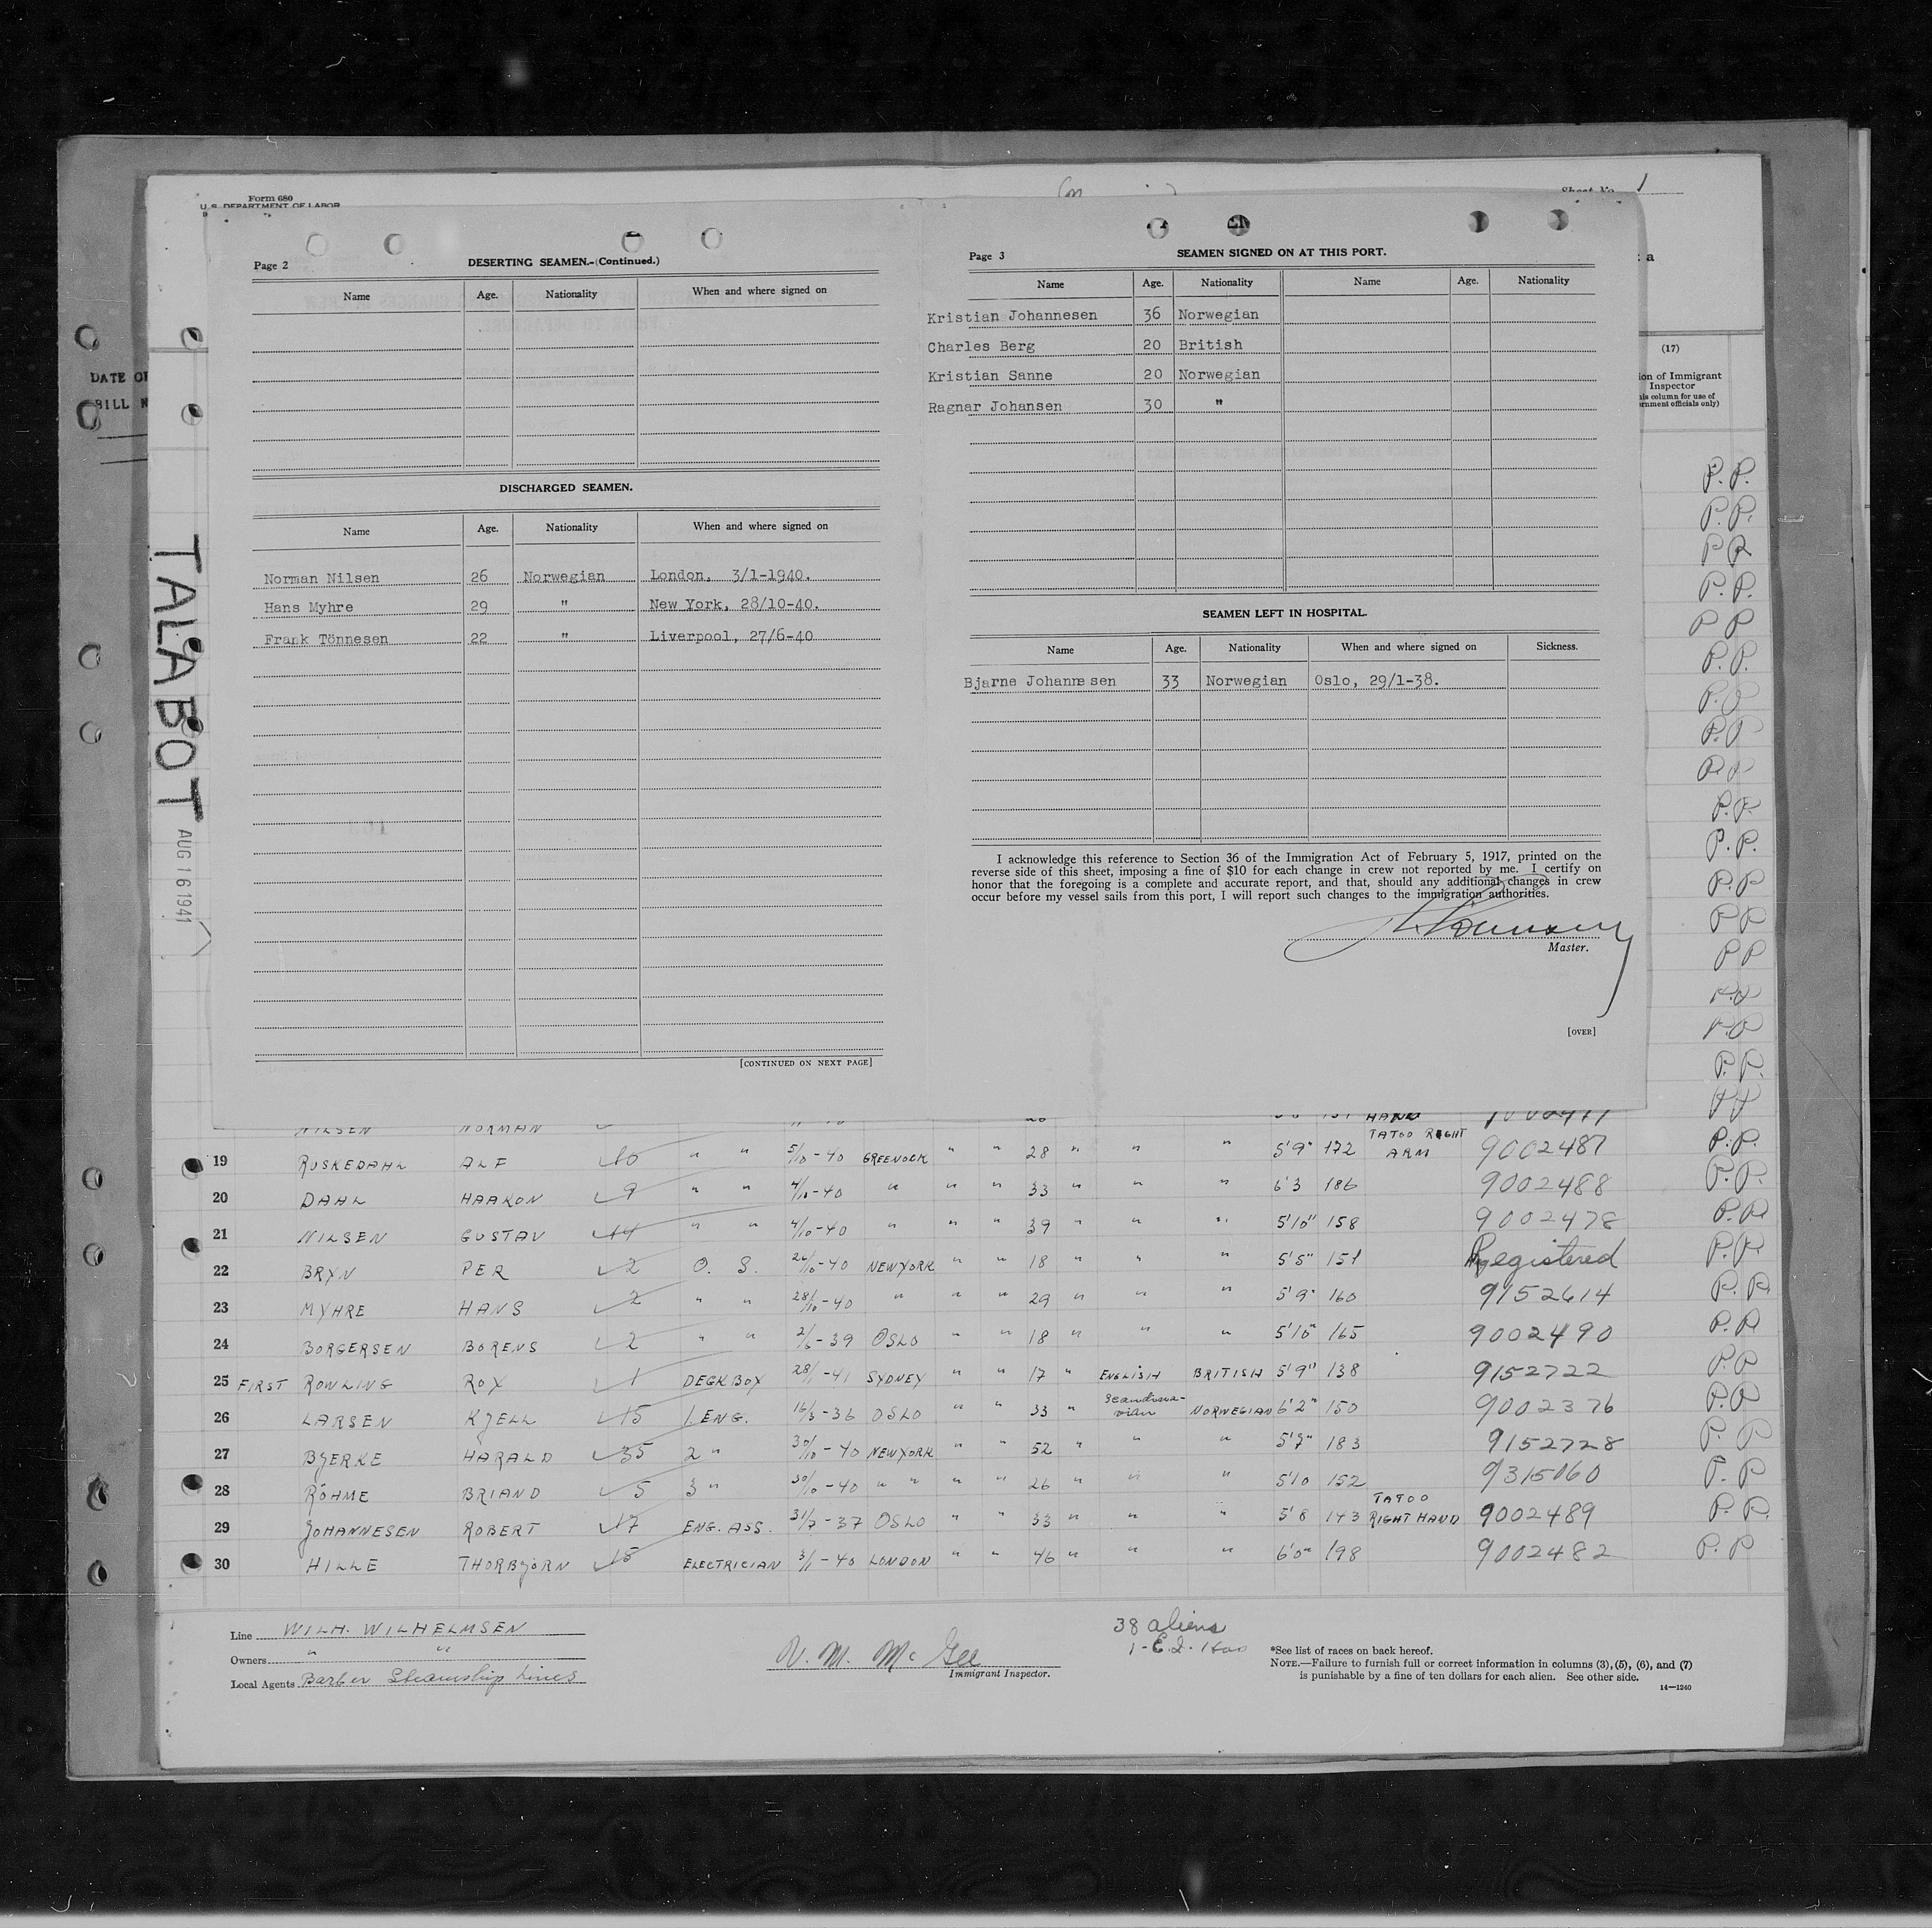 Form 680
U. S. DEPARTMENT OF LABOR
Sheet No. 1
DATE OF
BILL
TALABOT
AUG 16 1941
Page 2
DESERTING SEAMEN.-(Continued.)
Name Age. Nationality When and where signed on
DISCHARGED SEAMEN.
Name Age. Nationality When and where signed on
Norman Nilsen 26 Norwegian London, 3/1-1940.
Hans Myhre 29 " New York, 28/10-40.
Frank Tönnesen 22 " Liverpool, 27/6-40
[CONTINUED ON NEXT PAGE]
Page 3
SEAMEN SIGNED ON AT THIS PORT.
Name Age. Nationality Name Age. Nationality
Kristian Johannesen 36 Norwegian
Charles Berg 20 British
Kristian Sanne 20 Norwegian
Ragnar Johansen 30 "
SEAMEN LEFT IN HOSPITAL.
Name Age. Nationality When and where signed on Sickness.
Bjarne Johannesen 33 Norwegian Oslo, 29/1-38.
I acknowledge this reference to Section 36 of the Immigration Act of February 5, 1917, printed on the
reverse side of this sheet, imposing a fine of $10 for each change in crew not reported by me. I certify on
honor that the foregoing is a complete and accurate report, and that, should any additional changes in crew
occur before my vessel sails from this port, I will report such changes to the immigration authorities.
Master.
[OVER]
(17)
ion of Immigrant
Inspector
his column for use of
ernment officials only)
P.P.
P.P.
P P
P.P.
P P
P.P.
P.P.
P.P
P.P
P.P.
P.P.
P.P
P P
P P
P.P
P.P
P.P.
NILSEN NORMAN HAND
19 RUSKEDAHL ALF 10 " " 5/10-40 GREENOCK " " 28 " " " 5'9" 172 TATOO RIGHT ARM 9002487 P.P.
20 DAHL HAAKON 9 " " 4/10-40 " " " 33 " " " 6'3 186 9002488 P.P.
21 NILSEN GUSTAV 14 " " 4/10-40 " " " 39 " " " 5'10" 158 9002478 P.P.
22 BRYN PER 2 O. S. 26/10-40 NEWYORK " " 18 " " " 5'5" 151 Registered P.P.
23 MYHRE HANS 2 " " 28/10-40 " " " 29 " " " 5'9" 160 9152614 P.P.
24 BORGERSEN BORENS 2 " " 2/6-39 OSLO " " 18 " " " 5'10" 165 9002490 P.P.
25 FIRST ROWLING ROY 1 DECKBOY 28/1-41 SYDNEY " " 17 " ENGLISH BRITISH 5'9" 138 9152722 P.P
26 LARSEN KJELL 15 1. ENG. 16/3-36 OSLO " " 33 " Scandinavian NORWEGIAN 6'2" 150 9002376 P.P.
27 BJERKE HARALD 35 2 " 30/10-40 NEWYORK " " 52 " " " 5'7" 183 9152728 P P
28 RÖHME BRIAND 5 3 " 30/10-40 " " " " 26 " " " 5'10 152 9315060 P.P
29 JOHANNESEN ROBERT 17 ENG. ASS. 31/7-37 OSLO " " 33 " " " 5'8 143 TATOO RIGHT HAND 9002489 P.P.
30 HILLE THORBJÖRN 15 ELECTRICIAN 3/1-40 LONDON " " 46 " " " 6'0" 198 9002482 P.P
Line WILH. WILHELMSEN
Owners " "
Local Agents Barber Steamship Lines
V. M. McGee
Immigrant Inspector.
38 aliens
*See list of races on back hereof.
NOTE.—Failure to furnish full or correct information in columns (3), (5), (6), and (7)
is punishable by a fine of ten dollars for each alien. See other side.
14—1240